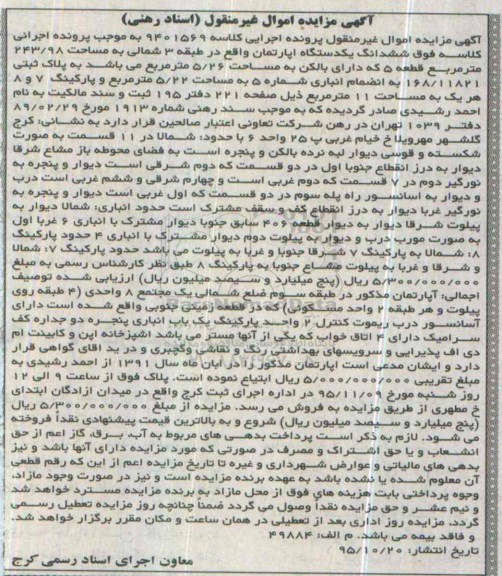 آگهی مزایده اموال غیرمنقول (اسناد رهنی)
آگهی مزایده اموال غیرمنقول پرونده اجرایی کلاسه ۹۴۰۱۵۶۹ به موجب پرونده اجرائی
کلاسه فوق ششدانگ یکدستگاه اپارتمان واقع در طبقه ۳ شمالی به مساحت ۲۴۳/۹۸
مترمربع قطعه ۵ که دارای بالکن به مساحت ۵/۲۶ مترمربع می باشد به پلاک ثبتی
۱۶۸/۱۱۸۲۱ به انضمام انباری شماره ۵ به مساحت ۵/۲۲ مترمربع و پارکینگ ۷ و ۸
هر یک به مساحت ۱۱ مترمربع ذیل صفحه ۲۲۱ دفتر ۱۹۵ ثبت و سند مالکیت به نام
احمد رشیدی صادر گردیده که به موجب سند رهنی شماره ۱۹۱۳ مورخ ۸۹/۰۲/۲۹
دفتر ۱۰۳۹ تهران در رهن شرکت تعاونی اعتبار صالحین قرار دارد به نشانی: کرج
گلشهر مهرویلا خ خیام غربی پ ۲۵ واحد ۶ با حدود: شمالا در ۱۱ قسمت به صورت
شکسته و قوسی دیوار لبه نرده بالکن و پنجره است به فضای محوطه باز مشاع شرقا
دیوار به درز انقطاع جنوبا اول در دو قسمت که دوم شرقی است دیوار و پنجره به
نورگیر دوم در ۷ قسمت که دوم غربی است و چهارم شرقی و ششم غربی است درب
و دیوار به آسانسور راه پله سوم در دو قسمت که اول غربی است دیوار و پنجره به
نورگیر غربا دیوار به درز انقطاع کف و سقف مشترک است حدود انباری: شمالا دیوار به
پیلوت شرقا دیوار به دیوار قطعه ۴۰۶ سابق جنوبا دیوار مشترک با انباری ۶ غربا اول
به صورت مورب درب و دیوار به پیلوت دوم دیوار مشترک با انباری ۴ حدود پارکینگ
۸: شمالا به پارکینگ ۷ شرقا جنوبا و غربا به پیلوت می باشد حدود پارکینگ ۷: شمالا
و شرقا و غربا به پیلوت مشاع جنوبا به پارکینگ ۸ طبق نظر کارشناس رسمی به مبلغ
۵/۳۰۰/۰۰۰/۰۰۰ ریال (پنج میلیارد و سیصد میلیون ریال) ارزیابی شده توصیف
اجمالی: آپارتمان مذکور در طبقه سوم ضلع شمالی یک مجتمع ۸ واحدی (۴ طبقه روی
پیلوت و هر طبقه ۲ واحد مسکونی) که در قطعه زمینی جنوبی واقع شده است دارای
آسانسور درب ریموت کنترل ۲ واحد پارکینگ یک باب انباری پنجره دو جداره کف
سرامیک دارای ۳ اتاق خواب که یکی از آنها مستر می باشد آشپزخانه اپن و کابینت ام
دی اف پذیرایی و سرویسهای بهداشتی رنگ و نقاشی وگچبری و در ید اقای گواهی قرار
دارد و ایشان مدعی است اپارتمان مذکور را در آبان ماه سال ۱۳۹۱ از احمد رشیدی به
مبلغ تقریبی ۵/۰۰۰/۰۰۰/۰۰۰ ریال ابتیاع نموده است. پلاک فوق از ساعت ۹ الی ۱۲
روز شنبه مورخ ۹۵/۱۱/۰۹ در اداره اجرای ثبت کرج واقع در میدان ازادگان ابتدای
خ مطهری از طریق مزایده به فروش می رسد. مزایده از مبلغ ۵/۳۰۰/۰۰۰/۰۰۰ ریال
(پنج میلیارد و سیصد میلیون ریال) شروع و به بالاترین قیمت پیشنهادی نقداً فروخته
می شود. لازم به ذکر است پرداخت بدهی های مربوط به آب، برق، گاز اعم از حق
انشعاب و یا حق اشتراک و مصرف در صورتی که مورد مزایده دارای آنها باشد و نیز
بدهی های مالیاتی و عوارض شهرداری و غیره تا تاریخ مزایده اعم از این که رقم قطعی
آن معلوم شده یا نشده باشد به عهده برنده مزایده است و نیز در صورت وجود مازاد،
وجوه پرداختی بابت هزینه های فوق از محل مازاد به برنده مزایده مسترد خواهد شد
و نیم عشر و حق مزایده نقداً وصول می گردد ضمناً چنانچه روز مزایده تعطیل رسمی
گردد، مزایده روز اداری بعد از تعطیلی در همان ساعت و مکان مقرر برگزار خواهد شد.
و فاقد بیمه می باشد. م الف: ۴۹۸۸۴
تاریخ انتشار: ۹۵/۱۰/۲۰
معاون اجرای اسناد رسمی کرج